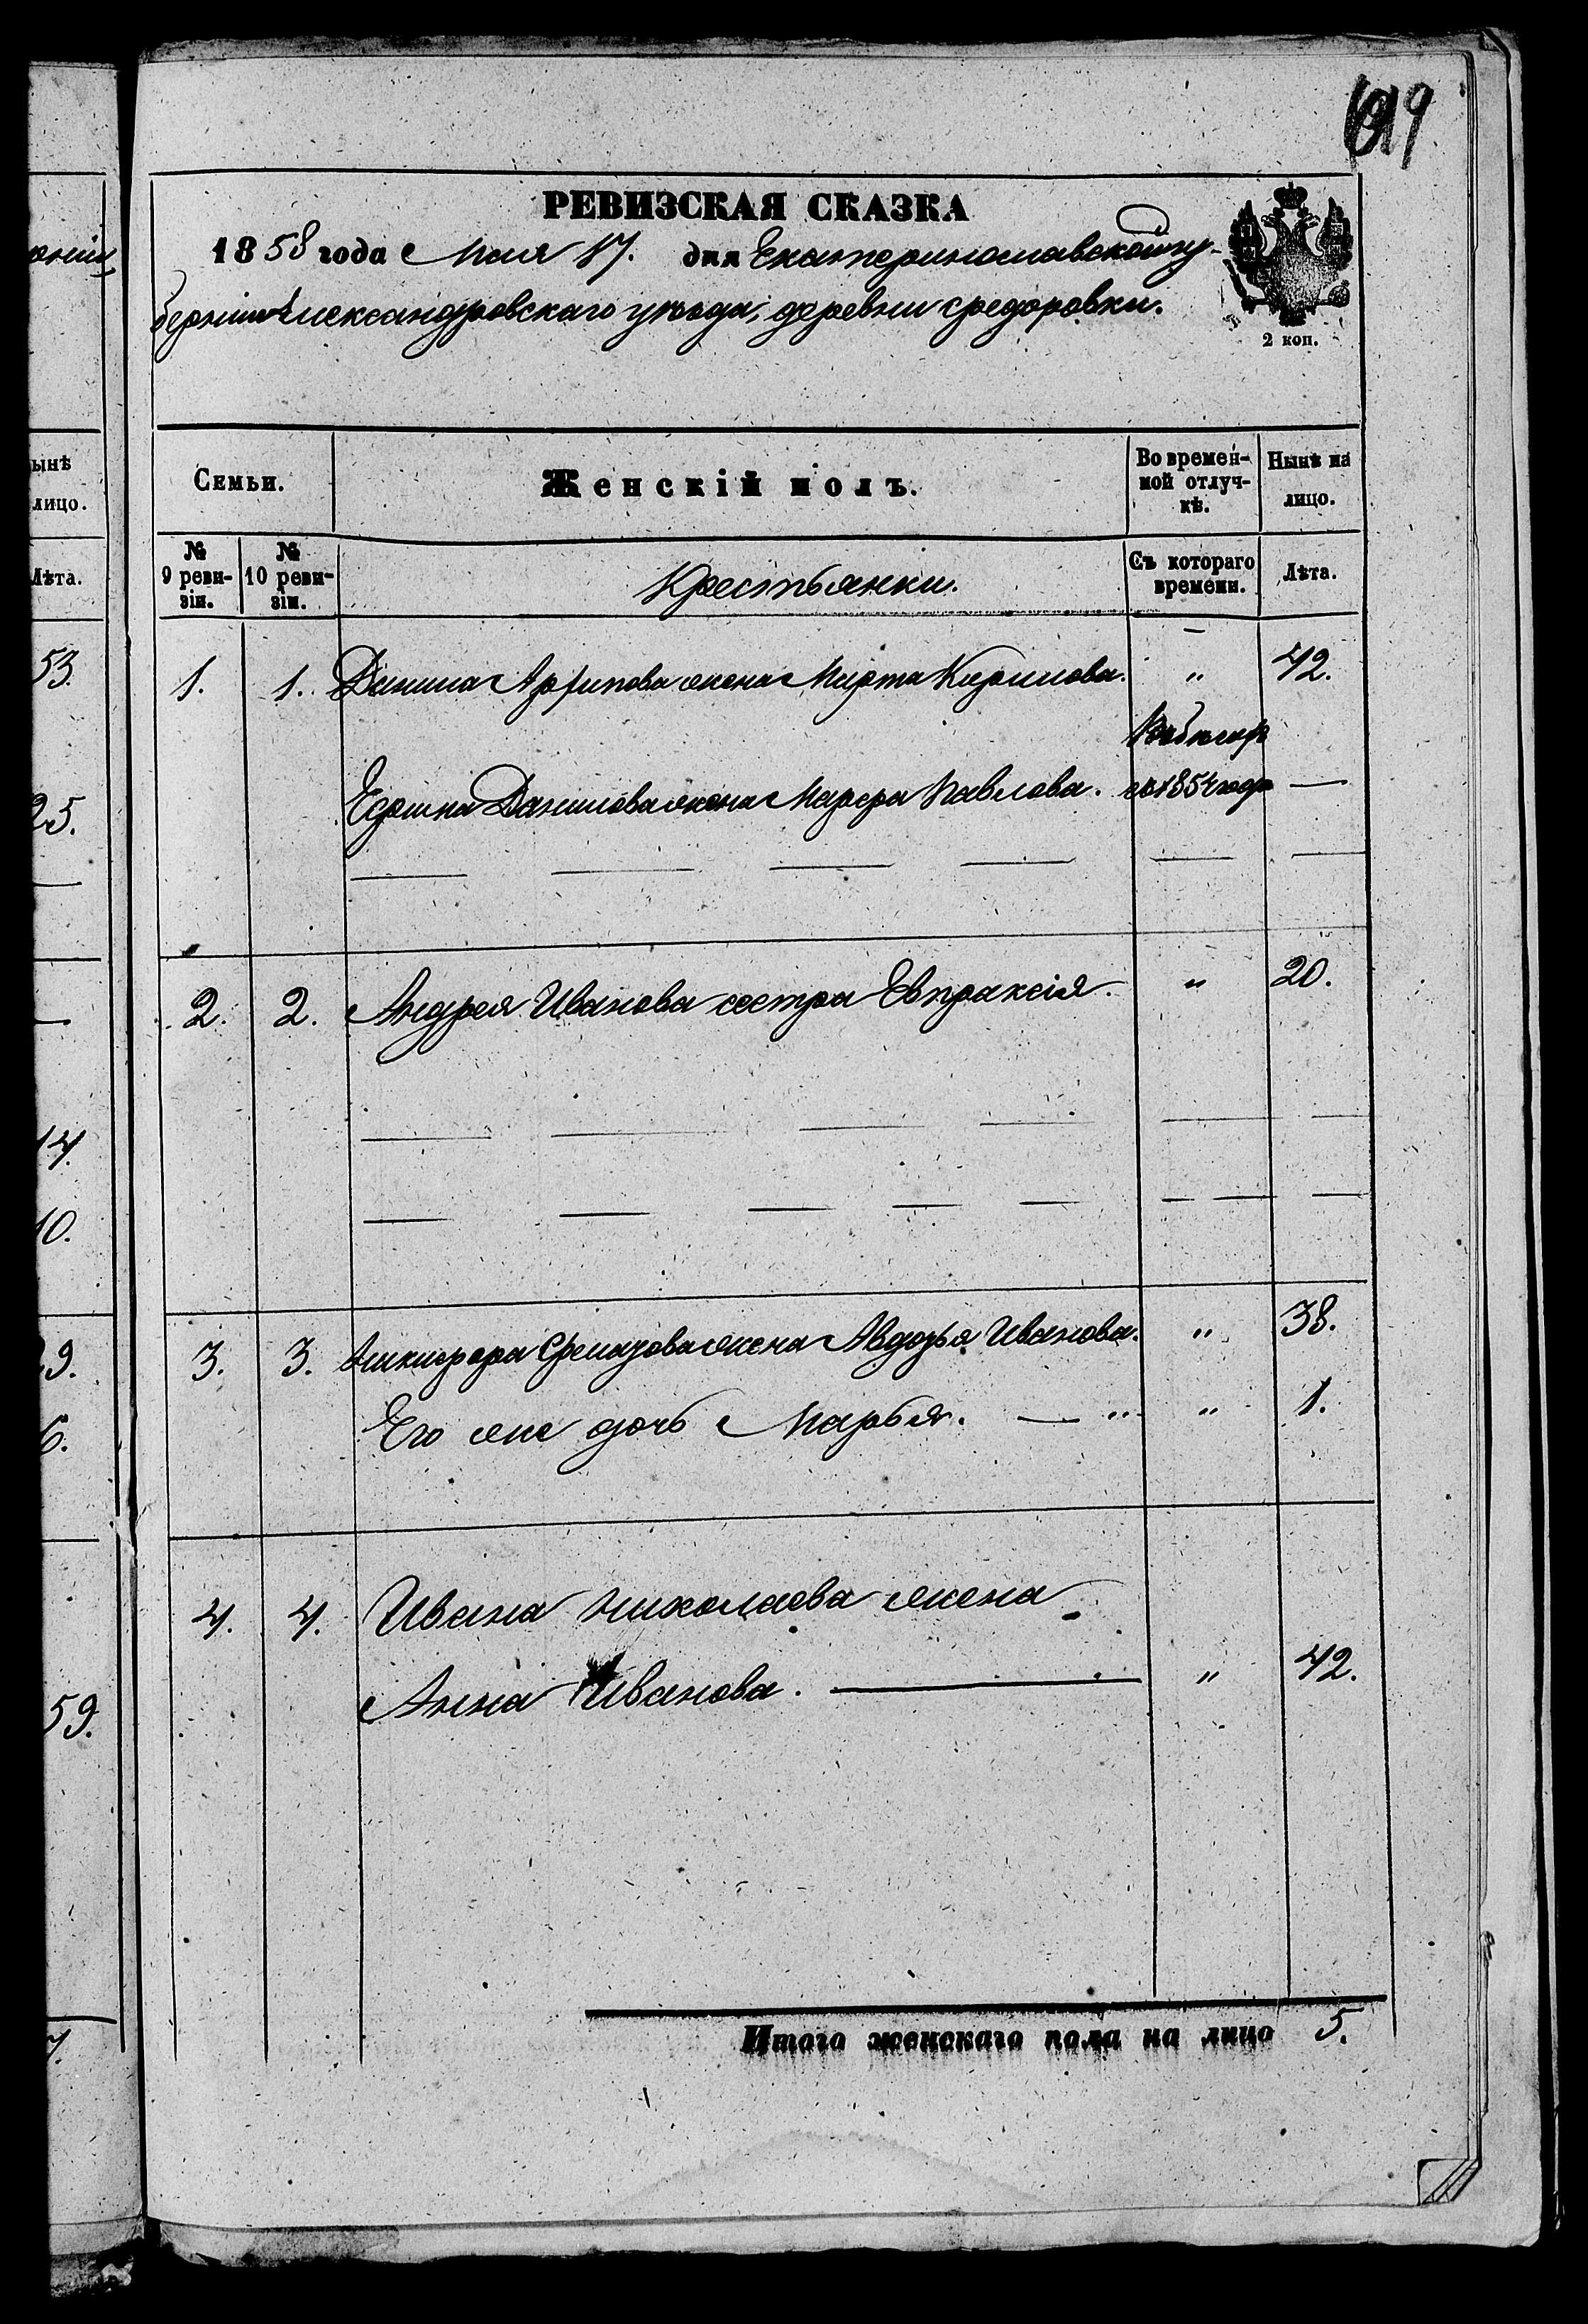 онiи
ынѣ
лицо.
Лѣта.
53.
25.
14.
10.
29.
6.
59.
7.
19
РЕВИЗСКАЯ СКАЗКА
1858 года Мая 17. дня Екатеринославской гу-
бернiи Александровскаго уѣзда, деревни Федоровки.
2 коп.
Семьи. Женскiй полъ. Во времен-ной отлуч-кѣ. Нынѣ на лицо.
№ 9 реви-зiи. № 10 реви-зiи. Крестьянки. Съ котораго времени. Лѣта.
1. 1. Данила Архипова жена Марта Кирилова. „ 42.
Въ бѣгахъ
Данилова жена Марфа Павлова. съ 1854 года —
2. 2. Андрея Иванова сестра Евпраксiя. „ 20.
3. 3. Никифора жена Авдотья Иванова. „ 38.
Его же дочь Марья. — „ „ 1.
4. 4. Ивана Николаева жена
Анна Иванова. — „ 42.
Итого женскаго пола на лицо 5.